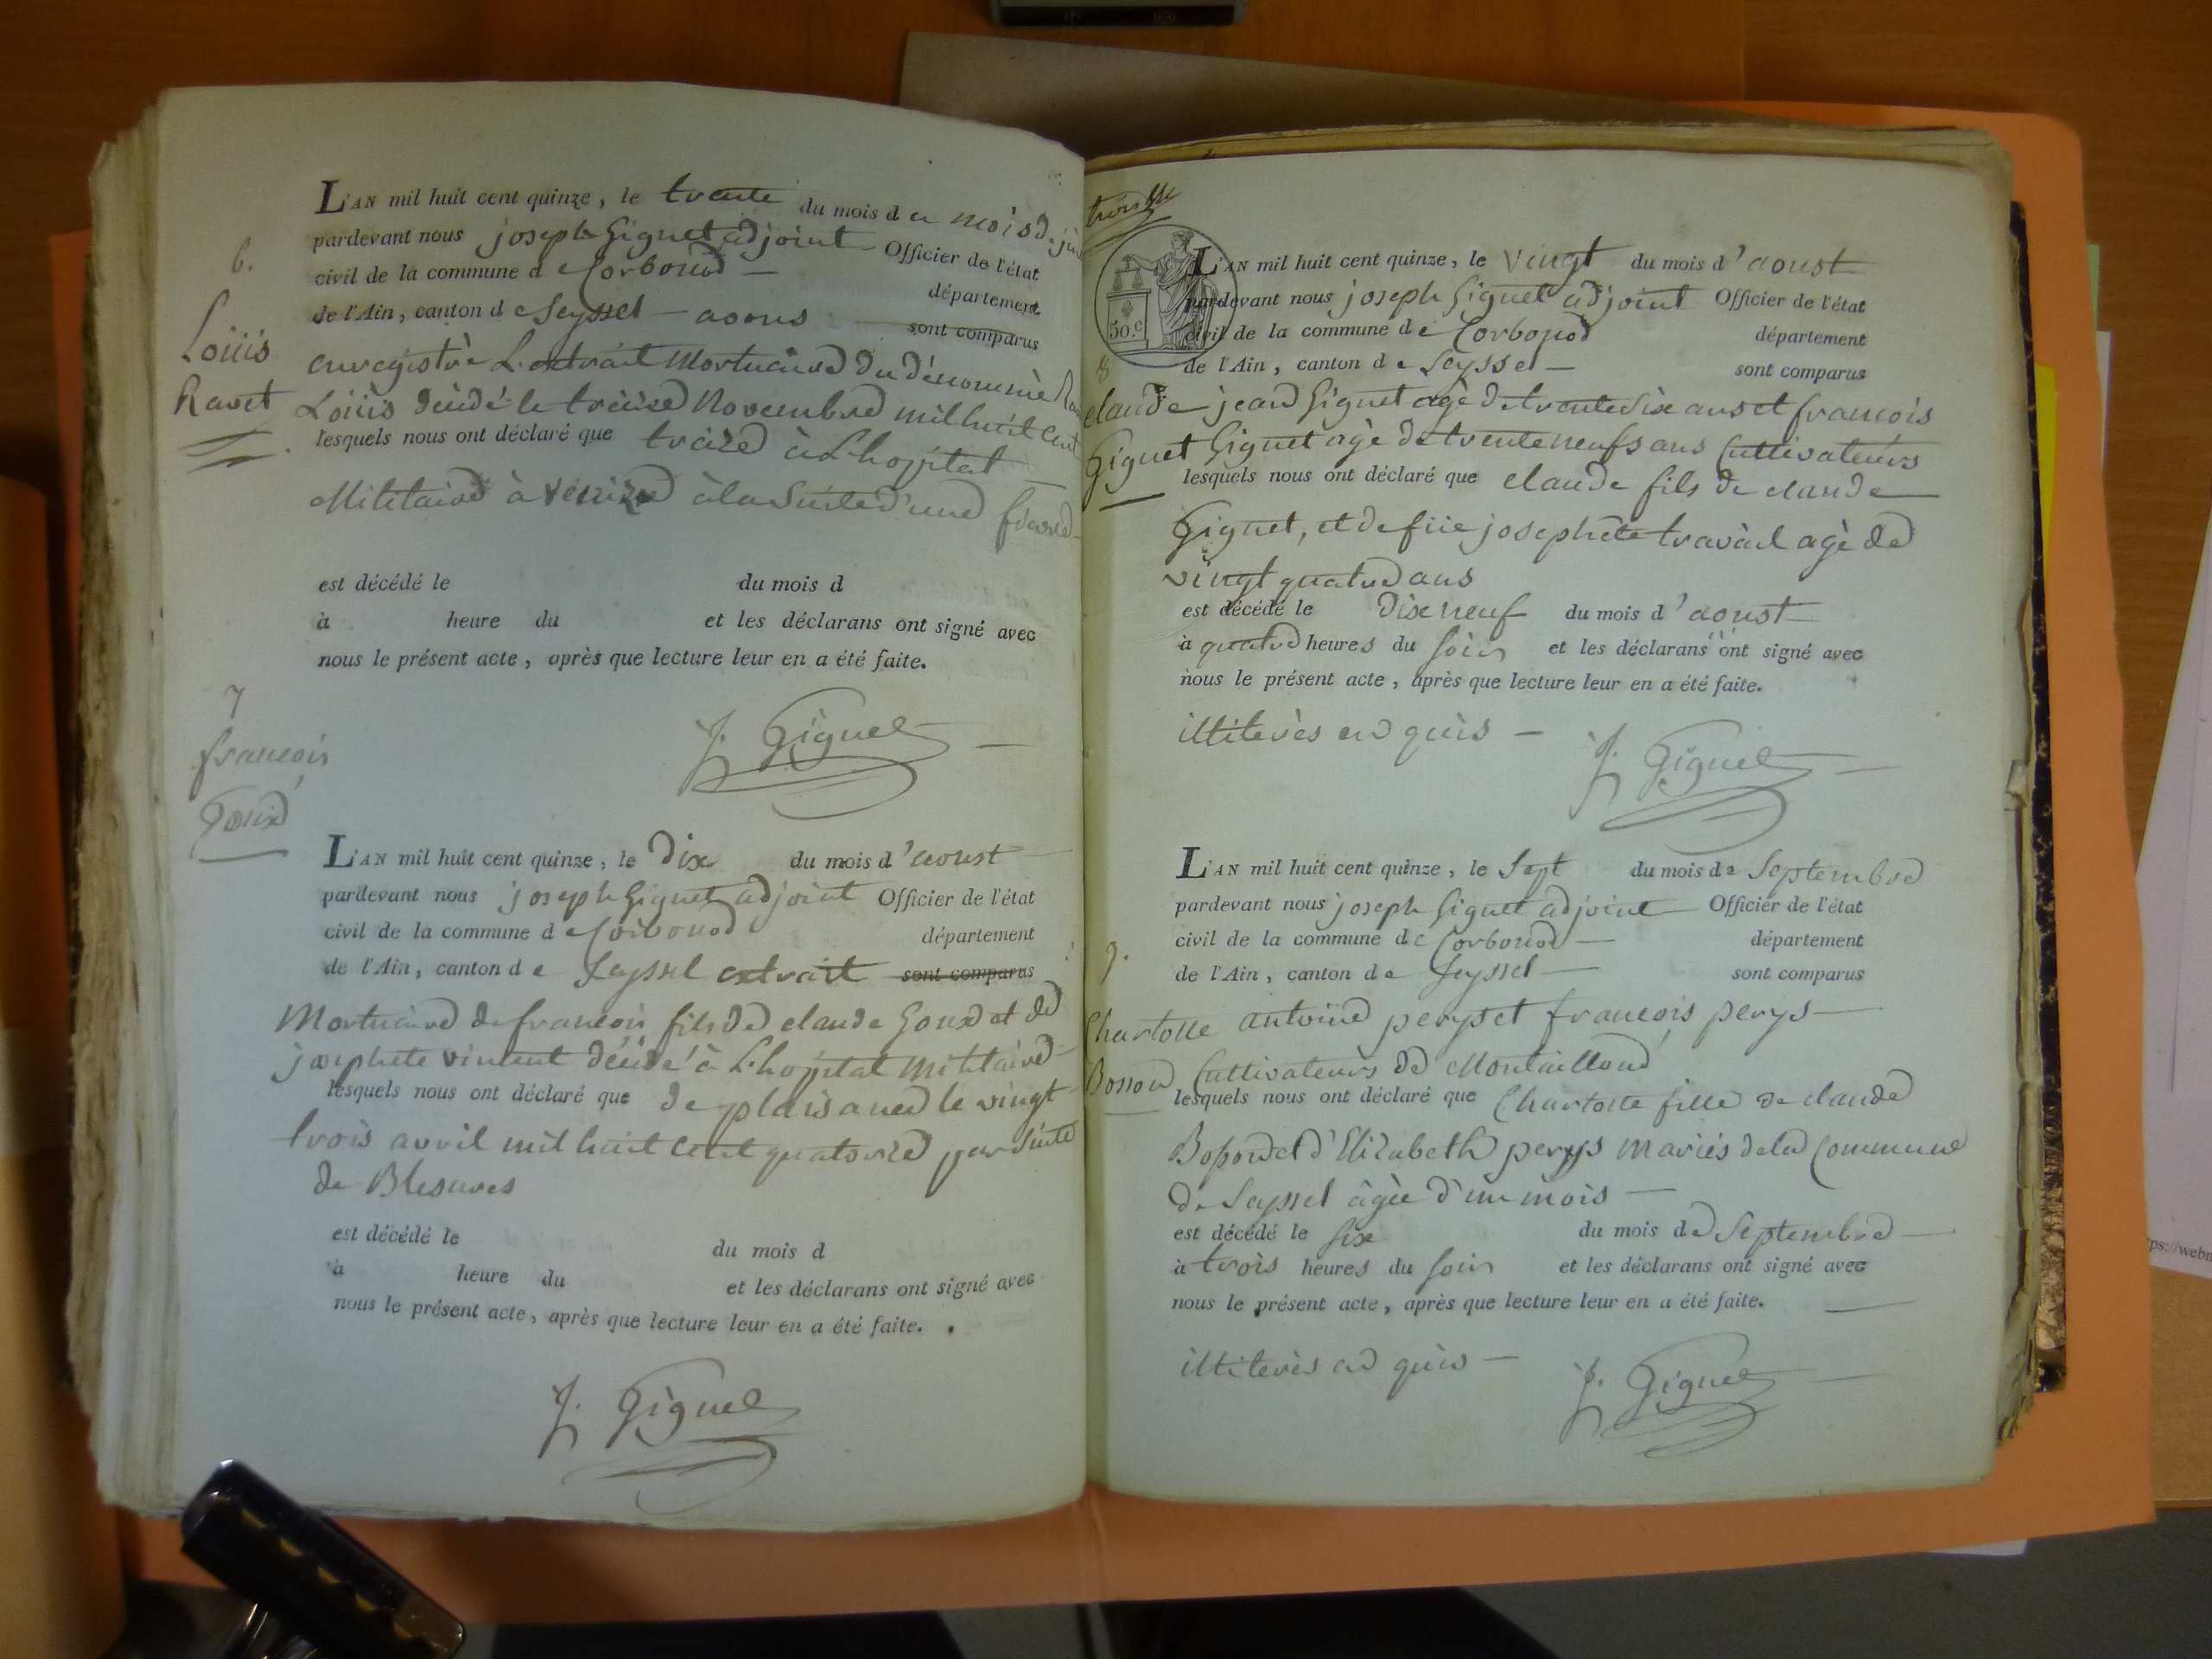 6.
Loüis
Ravet
L'AN mil huit cent quinze, le trente du mois d
pardevant nous joseph Giguet adjoint Officier de l'état
civil de la commune d e Corbonod
département
de l'Ain, canton d e Seyssel — avons sont comparus
enregistrè L'extrait Mortuaire du dénommè
Loüis décédé le treize Novembre mil huit cent
lesquels nous ont déclaré que treize à L'hopital
Militaire à Venize à la Suite d'une fievre
est décédé le du mois d
à heure du et les déclarans ont signé avec
nous le présent acte, après que lecture leur en a été faite.
J. Giguet
7
francois
Goux
L'AN mil huit cent quinze, le Dix du mois d'aoust
pardevant nous joseph Giguet adjoint Officier de l'état
civil de la commune d e Corbonod département
de l'Ain, canton d e Seyssel extrait sont comparus
Mortuaire de francois fils de claude Goux et de
josephete vincent décédé à L'hopital Militaire
lesquels nous ont déclaré que de plaisance le vingt
trois avril mil huit cent quatorze par Suite
de Blesures
est décédé le du mois d
à heure du et les déclarans ont signé avec
nous le présent acte, après que lecture leur en a été faite.
J. Giguet
50.c
8
claude
Giguet
L'AN mil huit cent quinze, le vingt du mois d'aoust
pardevant nous joseph Giguet adjoint Officier de l'état
civil de la commune d e Corbonod département
de l'Ain, canton d e Seyssel — sont comparus
jean Giguet agè de trente six ans et francois
Giguet agè de trente neufs ans Cultivateurs
lesquels nous ont déclaré que claude fils de claude
Giguet, et de josephete travail agè de
vingt quatre ans
est décédé le Dix neuf du mois d'aoust
à quatre heures du soir et les déclarans ont signé avec
nous le présent acte, après que lecture leur en a été faite.
illiterès en quis —
J. Giguet
9.
Charlotte
Bosson
L'AN mil huit cent quinze, le Sept du mois de Septembre
pardevant nous joseph Giguet adjoint Officier de l'état
civil de la commune de Corbonod — département
de l'Ain, canton d e Seyssel — sont comparus
antoine perys et francois perys —
Cultivateurs de Montailloud
lesquels nous ont déclaré que Charlotte fille de claude
Bosson et d'Elizabeth perys Mariés de la Commune
de Seyssel âgée d'un mois —
est décédé le six du mois de Septembre —
à trois heures du soir et les déclarans ont signé avec
nous le présent acte, après que lecture leur en a été faite.
illiterès en quis —
J. Giguet